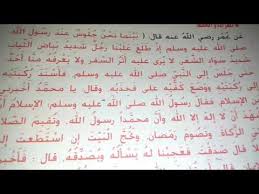 عَن عُمَر رضي اللهُ عنه قال ( بَيْنَما نَحْنُ جُلُوسٌ عِنْدَ رسُولِ اللهِ
صلى الله عليه وسلم إذْ طَلَعَ عَلَيْنا رَجُلٌ شديد بياض الثياب
شديد سواد الشعر لا يُرى عليه أثر السفر ولا يعرفه منا أحد
حتى جلس إلى النبي صلى الله عليه وسلم، فأسند ركبتيه
يا محمد أخبرني
الإسلام فقال رسول الله صلى الله عليه وسلم: الإسلام أن
وأن محمدا رسول الله، وتقيم الصلاة
الزكاة وتصوم رمضان، وتحج البيت إن استطعت
قال صدقت فعجبنا له يسأله ويصدقه، قال: